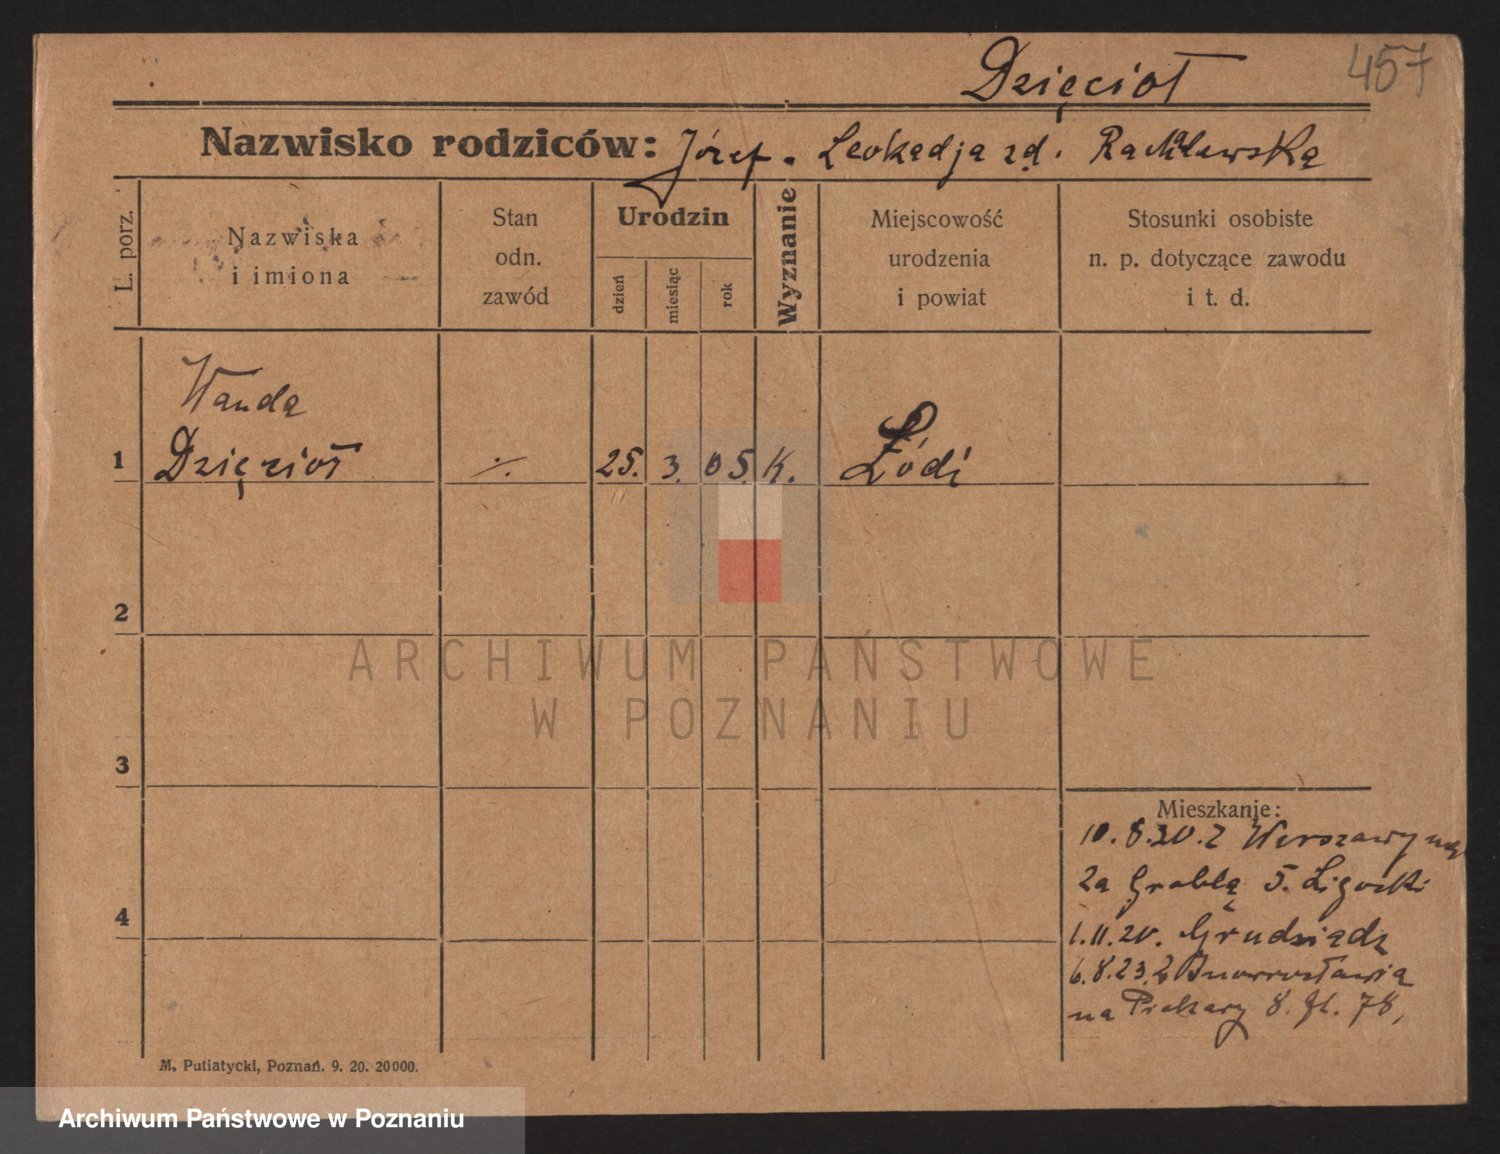 457
Dzięcioł
Nazwisko rodziców: Józef. Leokadja zd.
L. porz.
Nazwiska
i imiona
Stan
odn.
zawód
Urodzin
dzień
miesiąc
rok
Wyznanie
Miejscowość
urodzenia
i powiat
Stosunki osobiste
n. p. dotyczące zawodu
i t. d.
Wanda
1 Dzięcioł ./. 25. 3. 05. K. Łódź
2
ARCHIWUM PAŃSTWOWE
W POZNANIU
3
Mieszkanie:
10.8.20. z Warszawy
Za Groblą 5. Ligocki
4
1.11.20. Grudziądz
6.8.23. z Inowrocławia
na Piekary 8.
M. Putiatycki, Poznań. 9. 20. 20000.
Archiwum Państwowe w Poznaniu